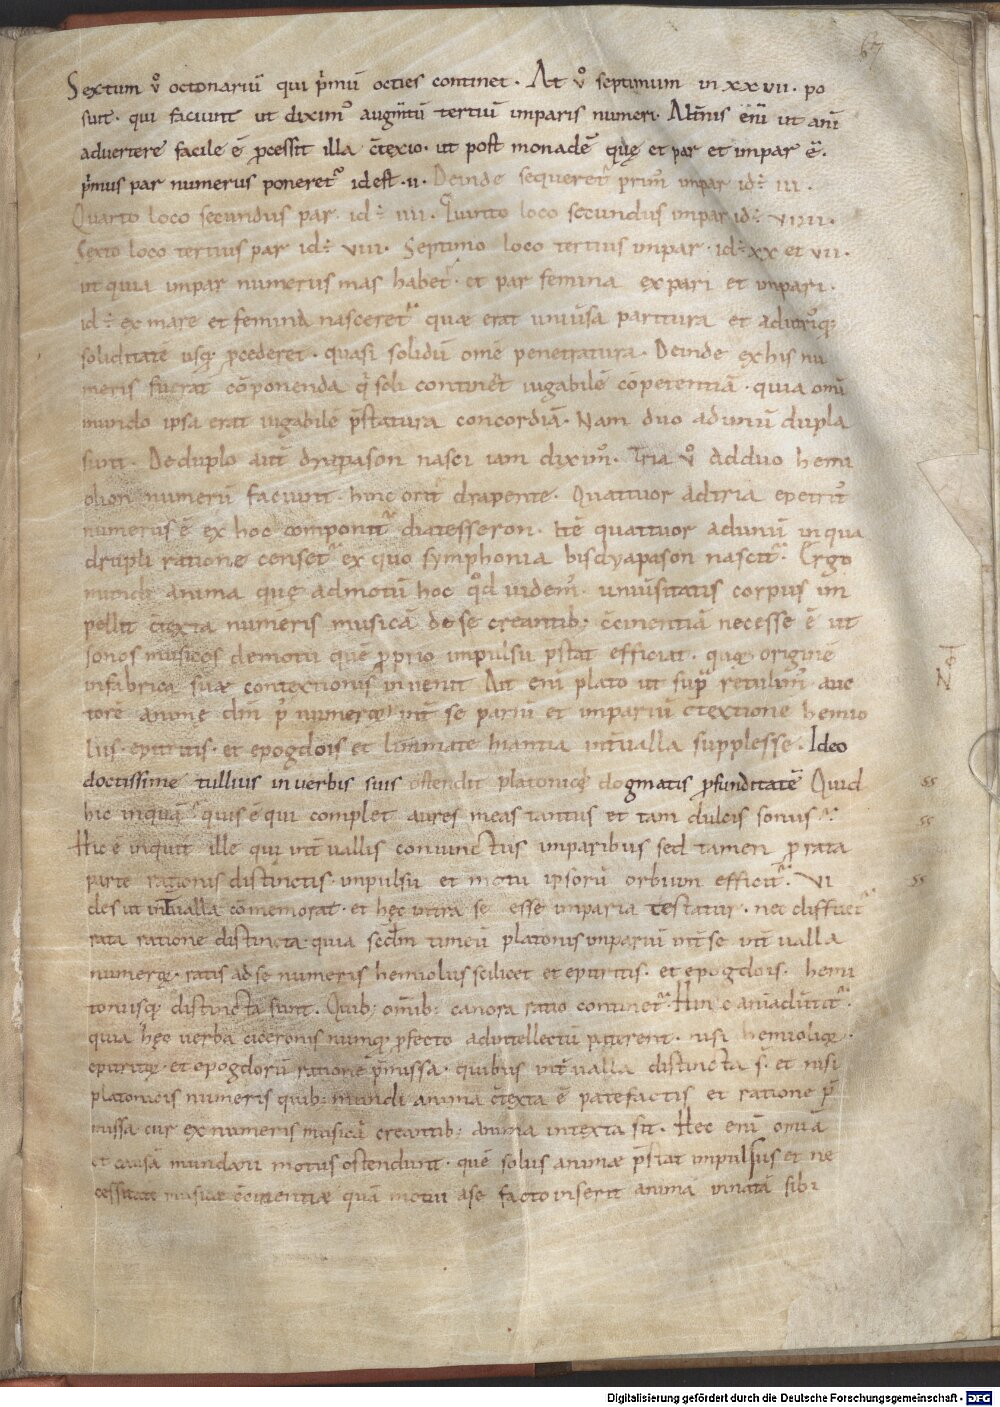 67
Sextum v̊ octonariū qui p̍mū octies continet · At v̊ septimum in xx vii · po
suit · qui faciunt ut diximꝰ augm̄tū tertiū imparis numeri · Alt̄nis eni̅ ut ani̅
advertere facile ē ꝓcessit illa c̄texio · ut post monadē quę et par et impar ē ·
p̍mus par numerus poneret᷒ id est · ii · Deinde sequeret᷒ primꝰ impar id ÷ iii ·
Quarto loco secundus par · id ÷ iiii · Quinto loco secundus impar id ÷ viiii ·
Sexto loco tertius par id ÷ viii · Septimo loco tertius impar · id ÷ xx et vii ·
ut quia impar numerus mas habet᷒ · et par femina ex pari et impari ·
id ÷ ex mare et femina nasceret᷒ quae erat univ̄sa paritura et ad utrūq;
soliditatē usq; ꝓcederet · quasi solidū omē penetratura · Deinde ex his nu
meris fuerat cōponenda q̍ soli continēt iugabilē cōpetentiā · quia omī
mundo ipsa erat iugabilē p̄statura concordiā · Nam duo ad unū dupla
sunt · De duplo autē dyapason nasci iam diximꝰ · Tria v̊ ad duo hemi
olion numerū faciunt · hinc orit᷒ dyapente · Quattuor ad tria epitritꝰ
numerus ē ex hoc componit᷒ diatesseron · Itē quattuor ad unū in qua
drupli ratione censet᷒ ex quo symphonia bisdyapason nascit᷒ · Ergo
mundi anima quę ad motū hoc qd̄ videmꝰ · univ̄sitatis corpus im
pellit c̄texta numeris musicā de se creantib; c̄cinentiā necesse ē ut
sonos musicos de motu quē ꝓprio impulsu p̄stat efficiat · quoꝝ originē
in fabrica suae contextionis invenit Ait eni̅ plato ut sup̄ retulimꝰ auc
torē animę dm̄ p̄ numeroꝝ int̄ se pariū et impariū c̄textione hemio
liis · epitritis · et epogdois et limmate hiantia int̄valla supplesse · Ideo
doctissime tullius in verbis suis ostendit platonicę dogmatis ꝓfunditatē Quid
hic inquā quis ē qui complet aures meas tantus et tam dulcis sonus
Hic ē inquit ille qui int̄vallis coniunctus imparibus sed tamen ꝓ rata
parte rationis distinctis · impulsu et motu ipsorū orbium efficit᷒ · Vi
des ut int̄valla cōmemorat · et hęc intra se esse imparia testatur · nec diffitet᷒
rata ratione distincta quia secd̄m timeū platonis impariū int̄ se int̄valla
numeroꝝ · ratis ad se numeris hemioliis scilicet et epitritis · et epogdois · hemi
toniisq; distincta sunt · Quib; omīb; canora ratio continet᷒ Hinc aniadv̄tit᷒ ·
quia hęc verba ciceronis numq̄ ꝓfecto ad intellectū paterent · nisi hemiolioꝝ ·
epitritoꝝ · et epogdorū ratione p̄missa · quibus int̄valla distincta s̄ · et nisi
platonicis numeris quib; mundi anima c̄texta ē patefactis et ratione p̄
missa cur ex numeris musicā creantib; anima intexta sit · Hec eni̅ omīa
et causā mundani motus ostendunt · quē solus animae p̄stat impulsus et ne
cessitate musicae c̄cinentiae quā motui a se facto inserit anima innatā sibi
Not
ss
ss
ss
Digitalisierung gefördert durch die Deutsche Forschungsgemeinschaft · DFG